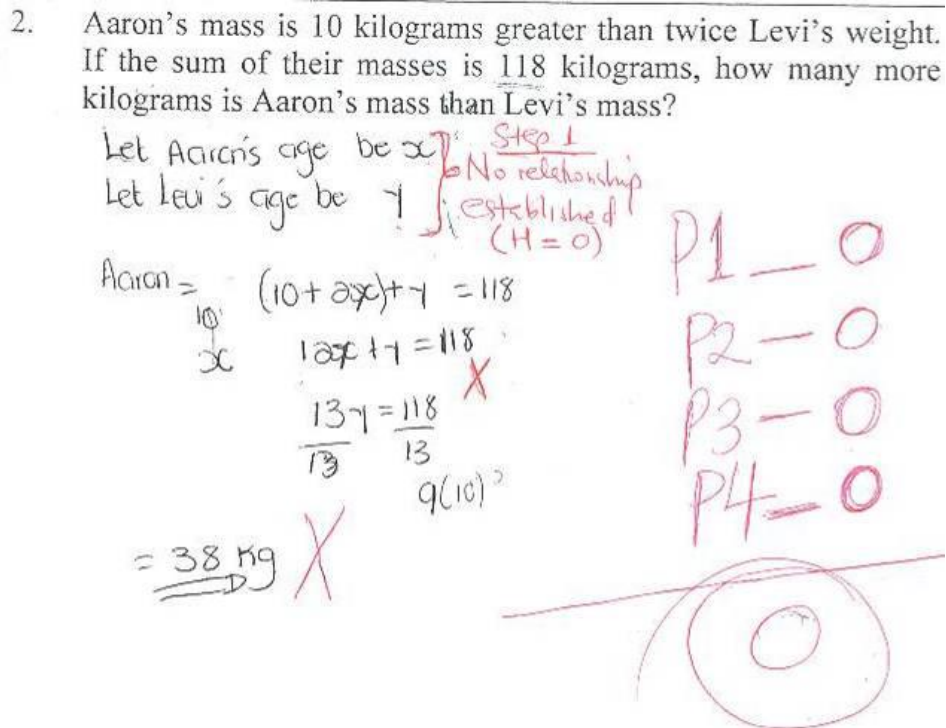 2. Aaron's mass is 10 kilograms greater than twice Levi's weight.
If the sum of their masses is 118 kilograms, how many more
kilograms is Aaron's mass than Levi's mass?
Let Aaron's age be x
Let Levi's age be y
Step 1
No relationship
established
(H = 0)
Aaron = (10 + 2x) + y = 118
10
x
12x + y = 118 X
13y = 118
13 13
9(10)
= 38 kg X
P1 — 0
P2 — 0
P3 — 0
P4 — 0
0